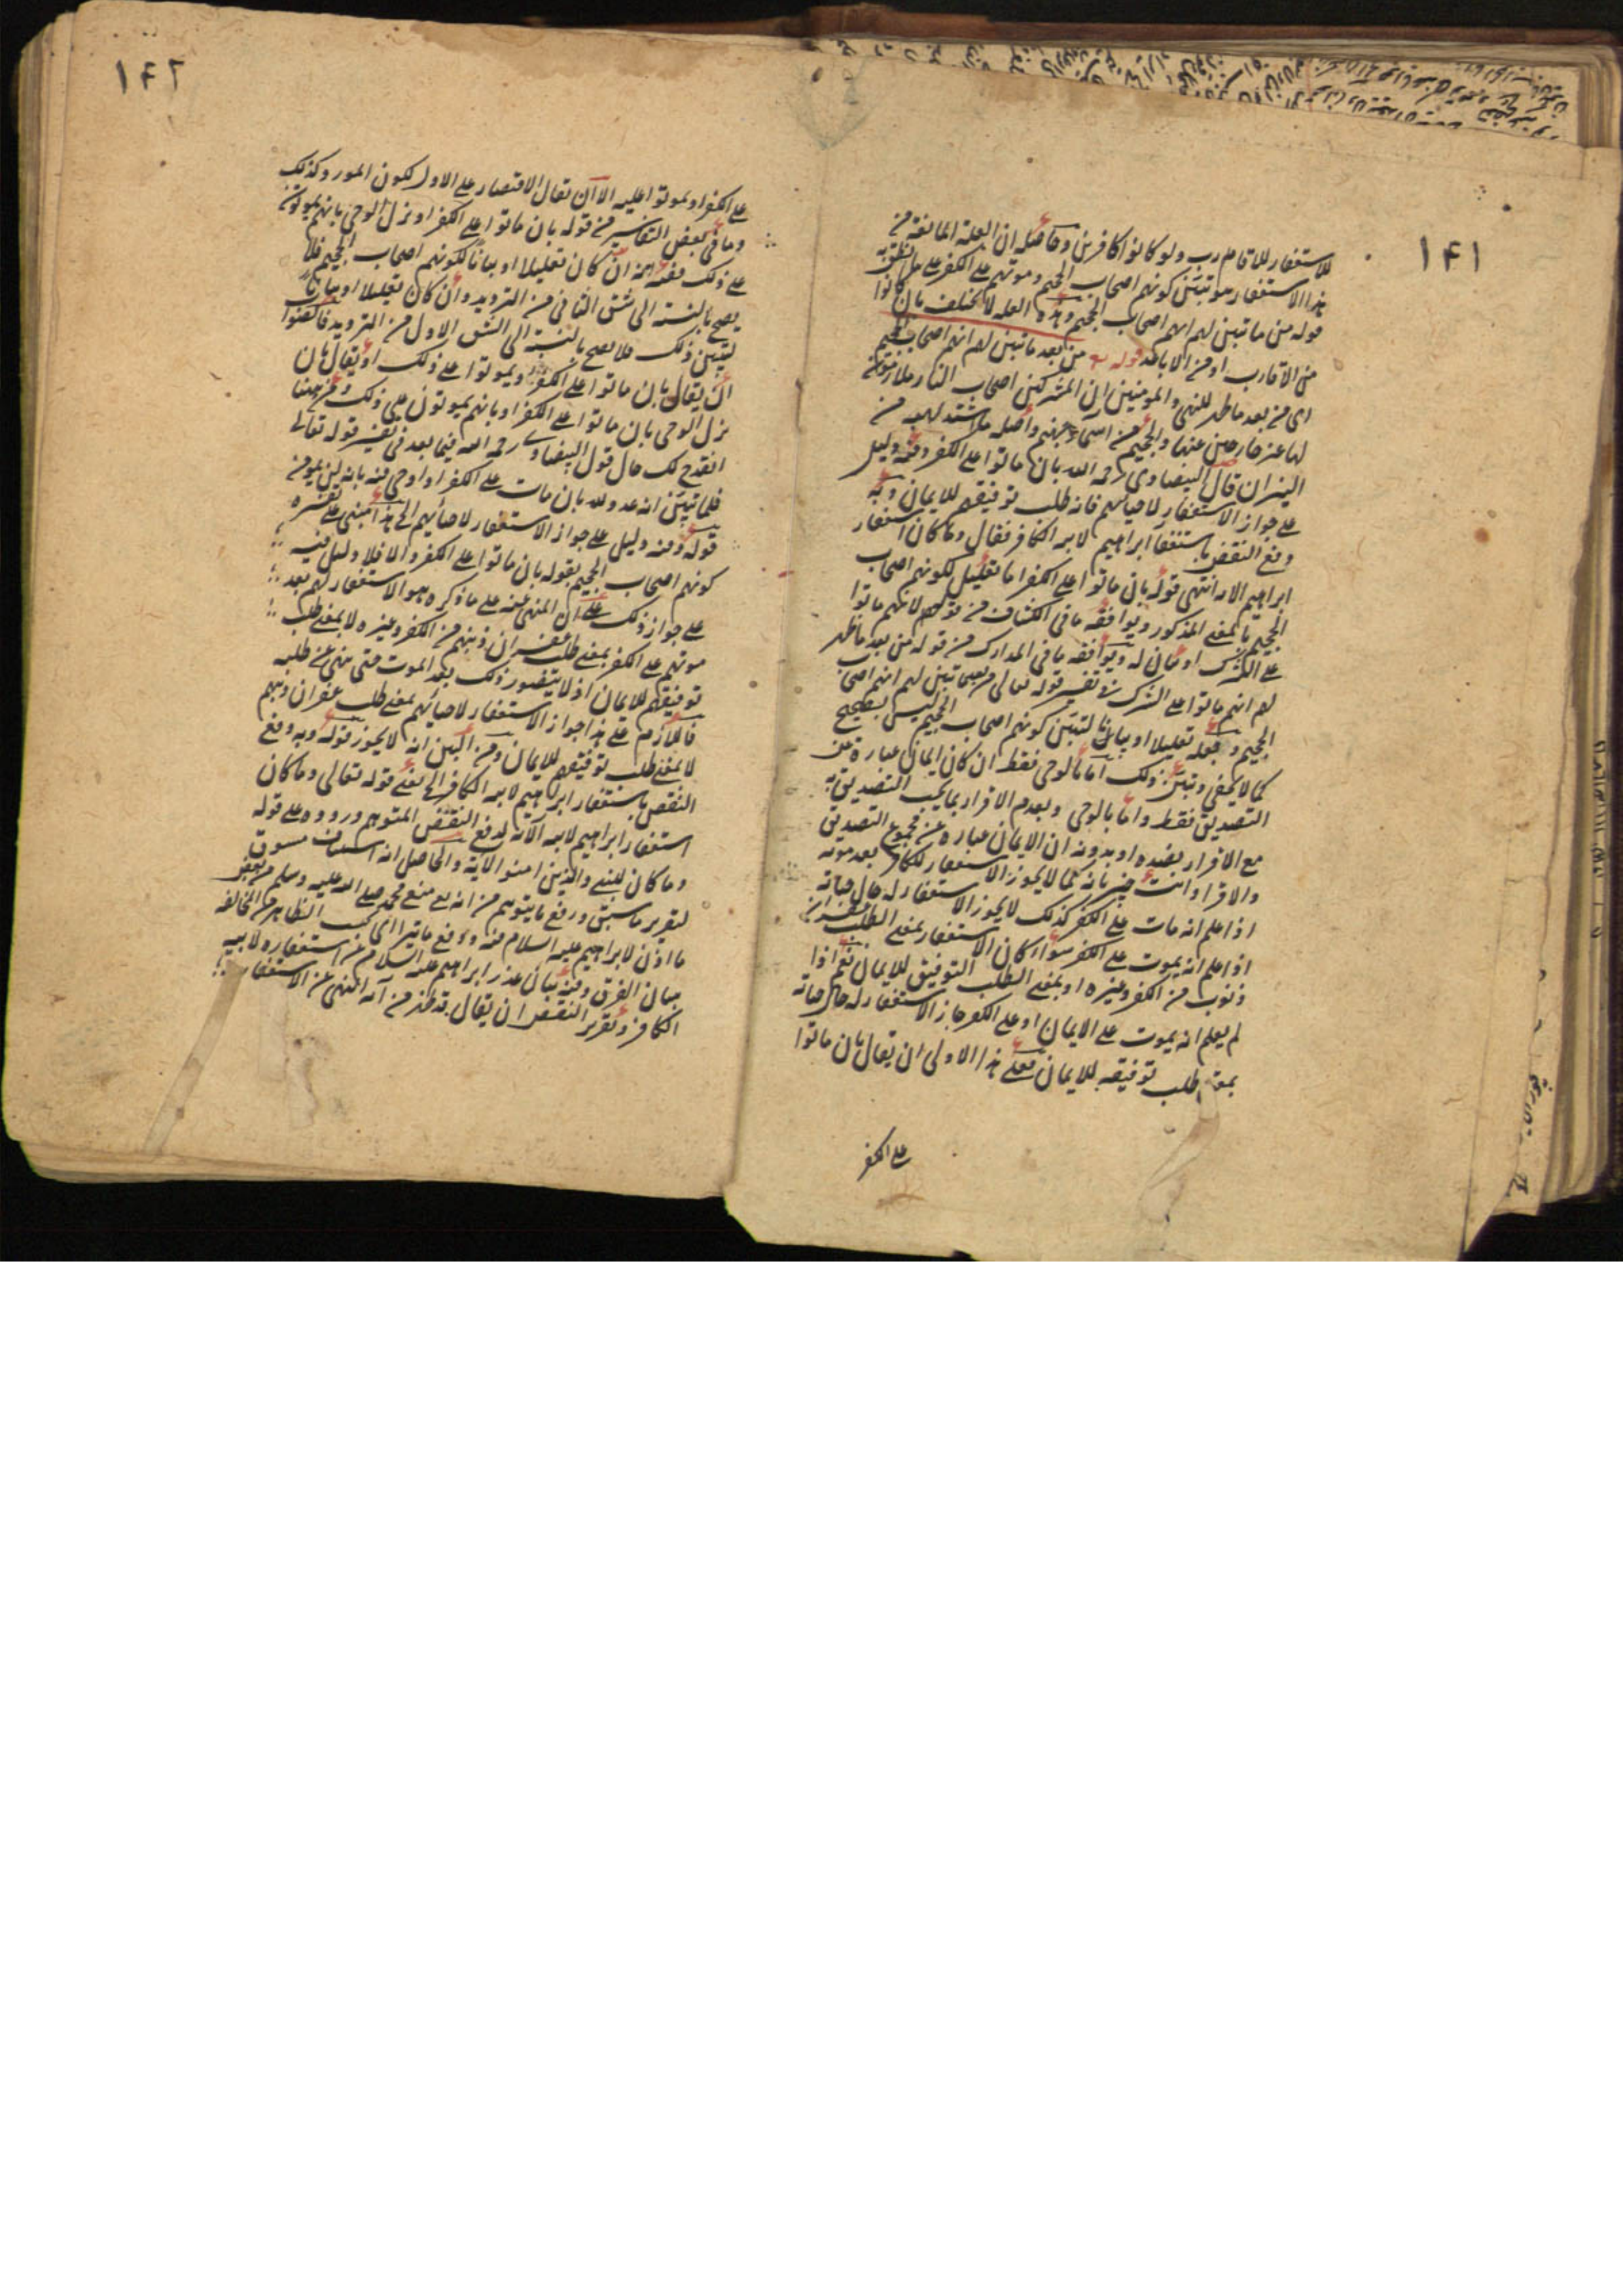 ١٤١
للاستغفار للاقارب ولو كانوا كافرين وحاصله ان العلة المانعة من
هذا الاستغفار هو تبين كونهم اصحاب الجحيم وموتهم على الكفر على ما نطق به
قوله من بعد ما تبين لهم انهم اصحاب الجحيم وهذه العلة لا تختلف بان كانوا
من الاقارب او من الاباعد قوله من بعد ما تبين لهم انهم اصحاب الجحيم
اى من بعد ما ظهر للنبى والمؤمنين ان المشركين اصحاب النار ملازمون
لها غير خارجين عنها والجحيم من اسماء جهنم واصله ما اشتد لهبه من
النيران قال البيضاوى رحمه الله بان ماتوا على الكفر وفيه دليل
على جواز الاستغفار لاحيائهم فانه طلب توفيقهم للايمان وبه
دفع النقض باستغفار ابراهيم لابيه الكافر فقال وما كان استغفار
ابراهيم الاية انتهى قوله بان ماتوا على الكفر اما تعليل لكونهم اصحاب
الجحيم بالمعنى المذكور ويوافقه ما فى الكشاف من قوله لانهم ماتوا
على الشرك او بيان له ويوافقه ما فى المدارك من قوله من بعد ما ظهر
لهم انهم ماتوا على الشرك فى تفسير قوله تعالى من بعد ما تبين لهم انهم اصحاب
الجحيم وجعله تعليلا او بيانا لتبين كونهم اصحاب الجحيم ليس بصحيح
كما لا يخفى وتبين ذلك اما بالوحى فقط ان كان الايمان عبارة عن
التصديق فقط واما بالوحى وبعدم الاقرار بما يجب التصديق به
مع الاقرار بضده او بدونه ان الايمان عبارة عن مجموع التصديق
والاقرار وانت خبير بانه كما لا يجوز الاستغفار للكافر بعد موته
اذا علم انه مات على الكفر كذلك لا يجوز الاستغفار له حال حياته
اذا علم انه يموت على الكفر سواء كان الاستغفار بمعنى الطلب غفران
ذنوب من الكفر وغيره او بمعنى الطلب التوفيق للايمان نعم اذا
لم يعلم انه يموت على الايمان او على الكفر جاز الاستغفار له حال حياته
بمعنى طلب توفيقه للايمان فعلى هذا الاولى ان يقال بان ماتوا
على الكفر
١٤٢
على الكفر او يموتوا عليه الا ان يقال الاقتصار على الاول لكون المورد كذلك
وما فى بعض التفاسير من قوله بان ماتوا على الكفر او نزل الوحى بانهم يموتون
على ذلك ففيه انه ان كان تعليلا او بيانا لكونهم اصحاب الجحيم فلا
يصح بالنسبة الى الشق الثانى من الترديد وان كان تعليلا او بيانا
لتبين ذلك فلا يصح بالنسبة الى الشق الاول من الترديد فالصواب
ان يقال بان ماتوا على الكفر ويموتوا على ذلك او يقال بان
نزل الوحى بان ماتوا على الكفر او بانهم يموتون على ذلك ومن ههنا
انقدح لك حال قول البيضاوى رحمه الله فيما بعد فى تفسير قوله تعالى
فلما تبين انه عدو لله بان مات على الكفر او اوحى فيه بانه لن يؤمن
قوله وفيه دليل على جواز الاستغفار لاحيائهم الخ هذا مبنى على تفسيره
كونهم اصحاب الجحيم بقوله بان ماتوا على الكفر والا فلا دليل فيه
على جواز ذلك على ان المنهى عنه على ما ذكره هو الاستغفار لهم بعد
موتهم على الكفر بمعنى طلب غفران ذنبهم من الكفر وغيره لا بمعنى طلب
توفيقهم للايمان اذ لا يتصور ذلك بعد الموت حتى ينهى عن طلبه
فاللازم على هذا جواز الاستغفار لاحيائهم بمعنى طلب غفران ذنبهم
لا بمعنى طلب توفيقهم للايمان ومن البين انه لا يجوز قوله وبه دفع
النقض باستغفار ابراهيم لابيه الكافر الخ يعنى قوله تعالى وما كان
استغفار ابراهيم لابيه الآية لدفع النقض المتوهم وروده على قوله
وما كان للنبى والذين امنوا الاية والحاصل انه استيناف مسوق
لتقرير ما سبق ودفع ما يتوهم من انه لم منع محمد صلى الله عليه وسلم من بعض
ما اذن لابراهيم عليه السلام فيه ودفع ما يتراءى بحسب الظاهر من المخالفة
ببيان الفرق وفيه بيان عذر ابراهيم عليه السلام من استغفاره لابيه
الكافر وتقرير النقض ان يقال قد ظهر من آية النهى عن الاستغفار